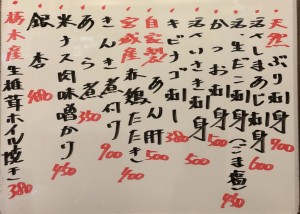 天然ぶり刺身 400
活〆しまあじ刺身 600
活〆生だこ刺身(ごま塩) 450
かつお刺身 500
活〆いさき刺身 500
キビナゴ刺 380
自家製あん肝 500
宮城産赤鶏たたき 400
きんき煮付け 900
あら煮 350
米ナス肉味噌かけ 450
銀杏 400
栃木産生椎茸ホイル焼き 380